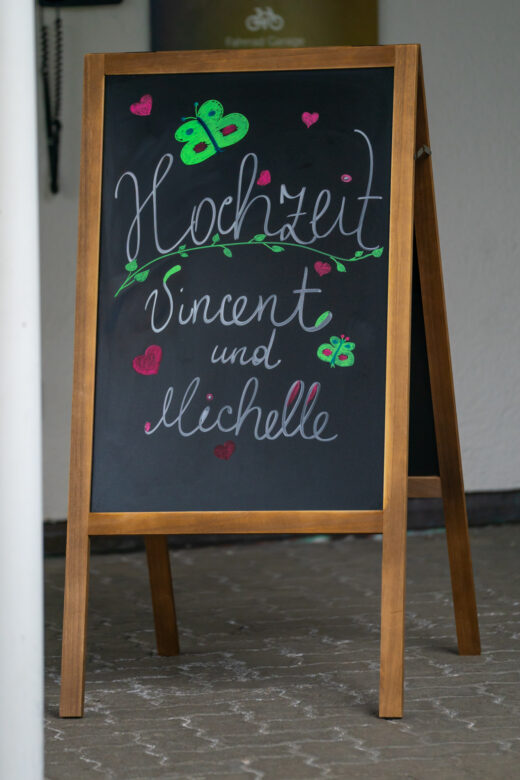 Fahrrad Garage
Hochzeit
Vincent
und
Michelle